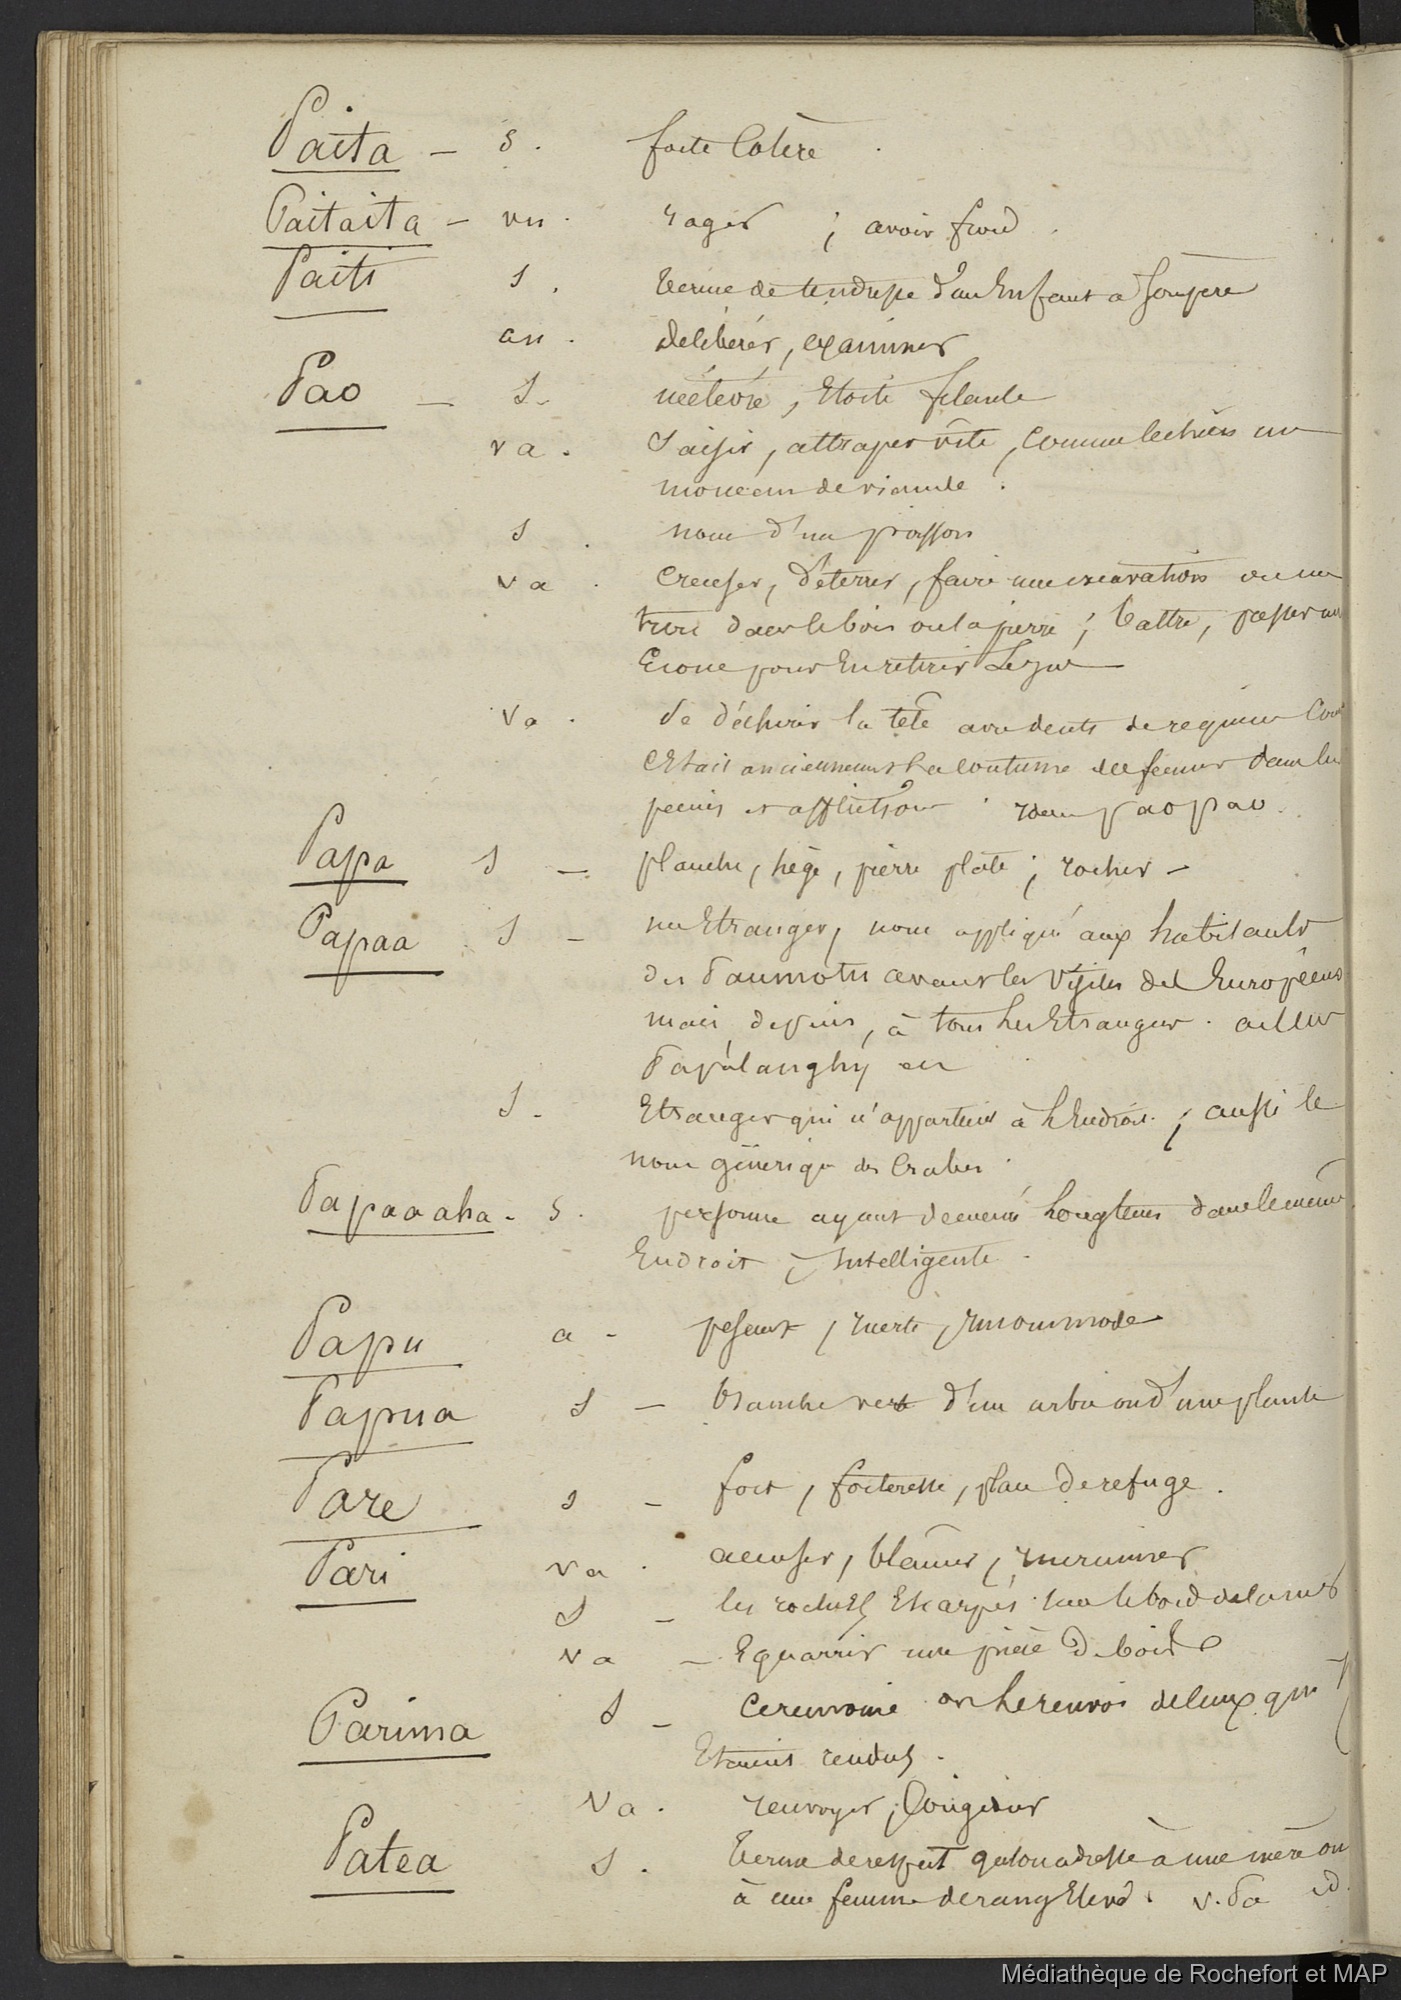 Paita — s. forte Colère.
Paitaita — vn. rager ; avoir froid.
Paiti s. terme de tendresse d'un Enfant a son père
an. délibérer, examiner
Pao — s. météore, Etoile filante
va. Saisir, attraper vite, comme le chien un
morceau de viande.
s. nom d'un poisson
va. Creuser, déterrer, faire une excavation ou un
trou dans le bois ou la pierre ; battre, presser
pour En retirer Le jus
va. Se déchirer la tête avec dents de requin
C'Etait anciennement La coutume des femmes dans les
peines et afflictions. paopao.
Papa s — planche, siège, pierre plate ; rocher —
Papaa s — un Etranger, nom appliqué aux habitants
des Paumotu avant les Visites des Européens
mais, depuis, à tous Les Etrangers. ailleurs
Papàlanghy en
s. Etranger qui n'appartient à L'Endroit. ; aussi le
nom générique des Crabes.
Papaaaha. s. personne ayant demeuré Longtems dans le même
Endroit ; Intelligente.
Papu a — pesant, inerte, incommode
Papua s — branche verte d'un arbre ou d'une plante
Pare s — fort, forteresse, place de refuge.
Pari va. accuser, blâmer, incriminer
s — les rochers Escarpés sur le bord de la mer
va — Equarrir une pièce de bois
Parima s — Ceremonie ou Le renvoi de Ceux qui
Etaient rendus.
va. renvoyer, Congédier
Patea s. terme de respect qu'on adresse à une mère ou
à une femme de rang Elevé. v. Pa id.
Médiathèque de Rochefort et MAP